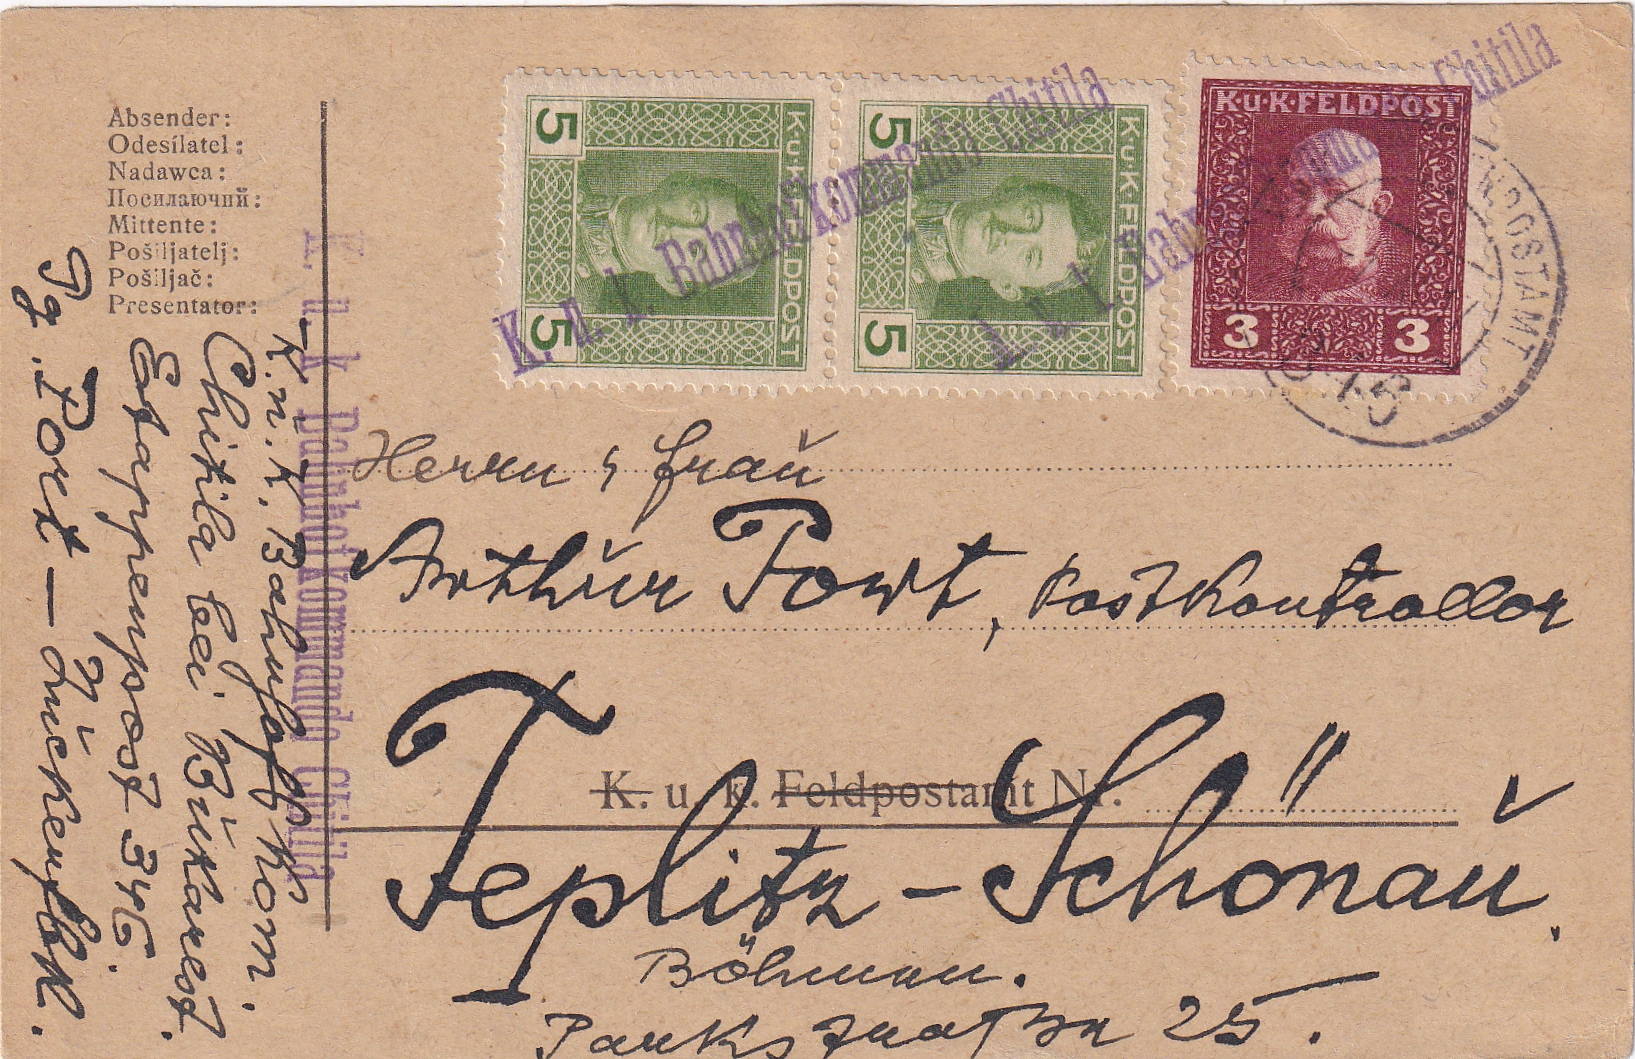 Absender:
Odesílatel:
Nadawca:
Посилаючий:
Mittente:
Pošiljatelj:
Pošiljač:
Presentator:
K. u. k. Bahnhofkommando Chitila
K. u. k. Bahnhofkom.
Chitila bei Bukarest
Etappenpost 346.
Port
5
5
K.u.K. FELDPOST
5
5
K.u.K. FELDPOST
K.u.K. FELDPOST
3 3
K. u. k. Bahnhofkommando Chitila
K. u. k. Chitila
POSTAMT
Herrn & Frau
Arthur Port, Postkontrollor
K. u. k. Feldpostamt Nr.
Teplitz-Schönau.
Böhmen.
25.